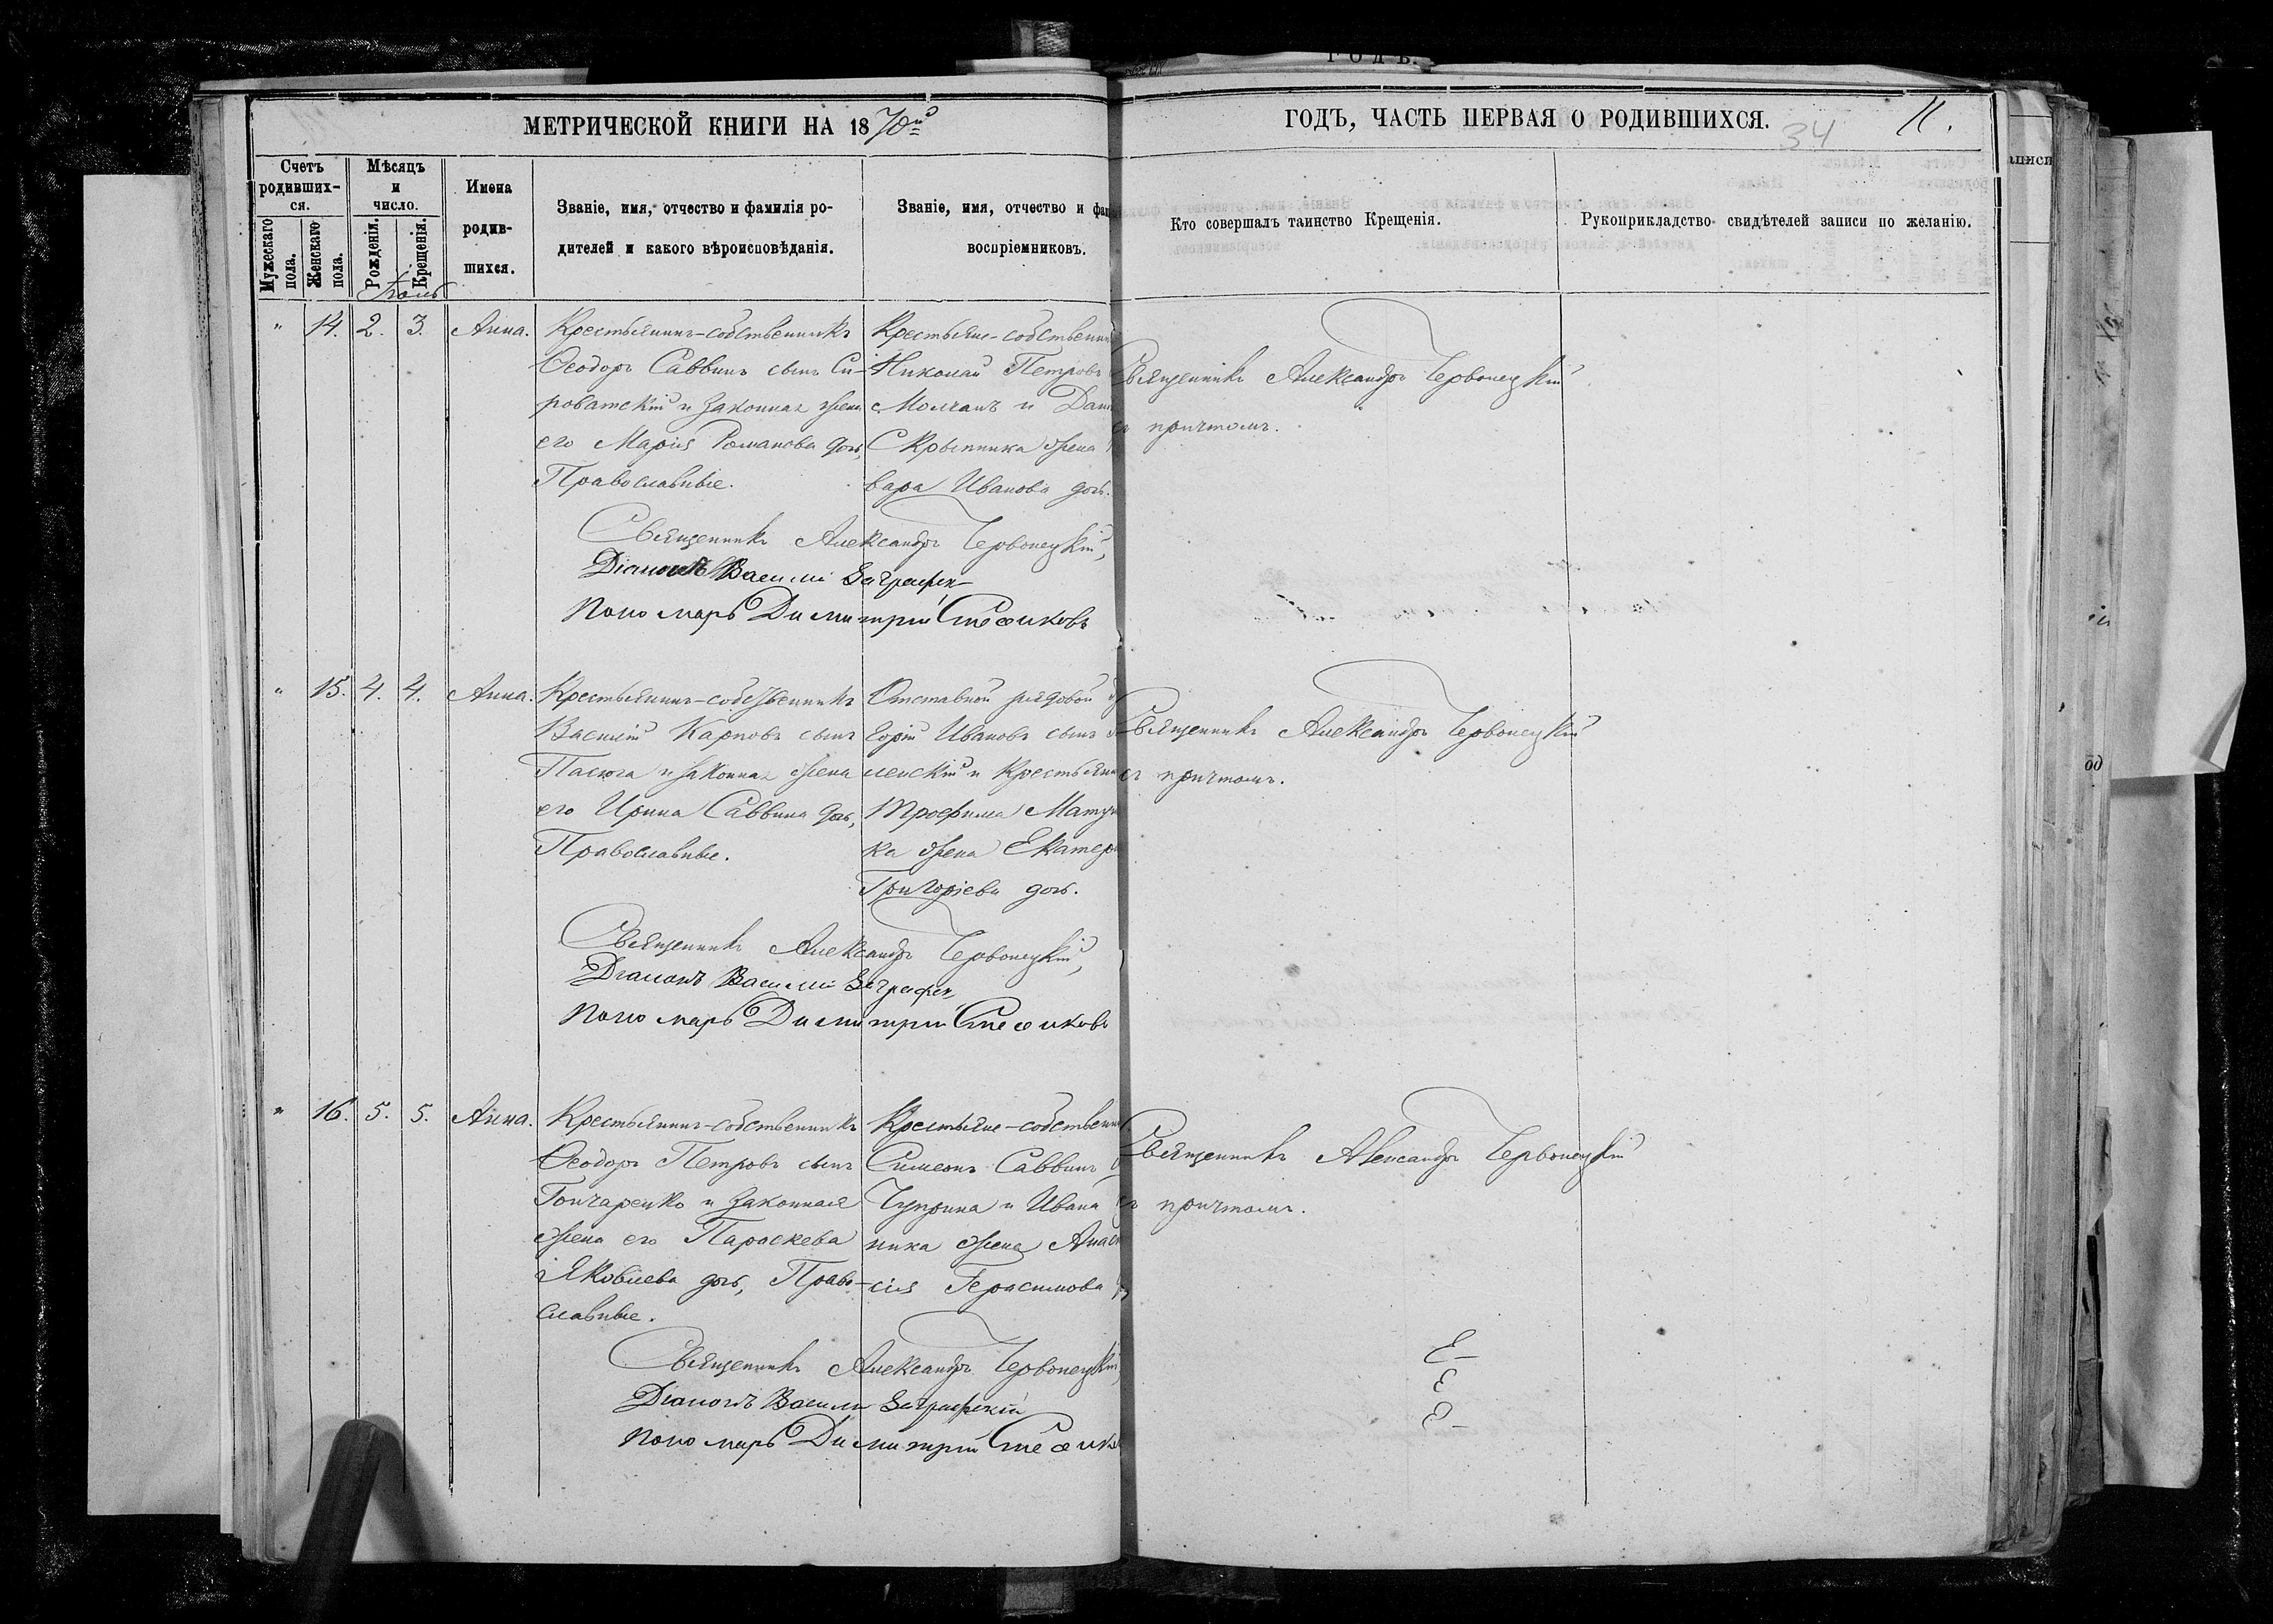 МЕТРИЧЕСКОЙ КНИГИ НА 1870й
ГОДЪ, ЧАСТЬ ПЕРВАЯ О РОДИВШИХСЯ.
34
11.
Счетъ родившихся.
Мужескаго пола.
Женскаго пола.
Мѣсяцъ и число.
Рожденія.
Крещенія.
Имена родившихся.
Званіе, имя, отчество и фамилія родителей и какого вѣроисповѣданія.
Званіе, имя, отчество и фам
воспріемниковъ.
Кто совершалъ таинство Крещенія.
Рукоприкладство свидѣтелей записи по желанію.
" 14. 2. 3. Анна.
Крестьянинъ-собственникъ
Ѳеодоръ Саввинъ сынъ Си-
роватскій и законная жена
его Марія Романова дочь,
Православные.
Крестьяне-собственни
Николай Петровъ
Молчанъ и Дани
Скрыпника жена
вара Иванова дочь.
Священникъ Александръ Червонецкій
съ причтомъ.
Священникъ Александръ Червонецкій,
Діаконъ Василій
Пономарь Димитрій
" 15. 4. 4. Анна.
Крестьянинъ-собственникъ
Василій Карповъ сынъ
Пасюга и законная жена
его Ирина Саввина дочь,
Православные.
Отставной рядовой
горій Ивановъ сынъ
ленскій и крестьяни
Трофима
ка жена Екатери
Григоріева дочь.
Священникъ Александръ Червонецкій
съ причтомъ.
Священникъ Александръ Червонецкій,
Діаконъ Василій
Пономарь Димитрій
" 16. 5. 5. Анна.
Крестьянинъ-собственникъ
Ѳеодоръ Петровъ сынъ
Гончаренко и законная
жена его Параскева
Яковлева дочь, Право-
славные.
Крестьяне-собственни
Симеонъ Саввинъ
Чуприна и Ивана
ника жена Анаста
сія Герасимова
Священникъ Александръ Червонецкій
съ причтомъ.
Священникъ Александръ Червонецкій,
Діаконъ Василій
Пономарь Димитрій